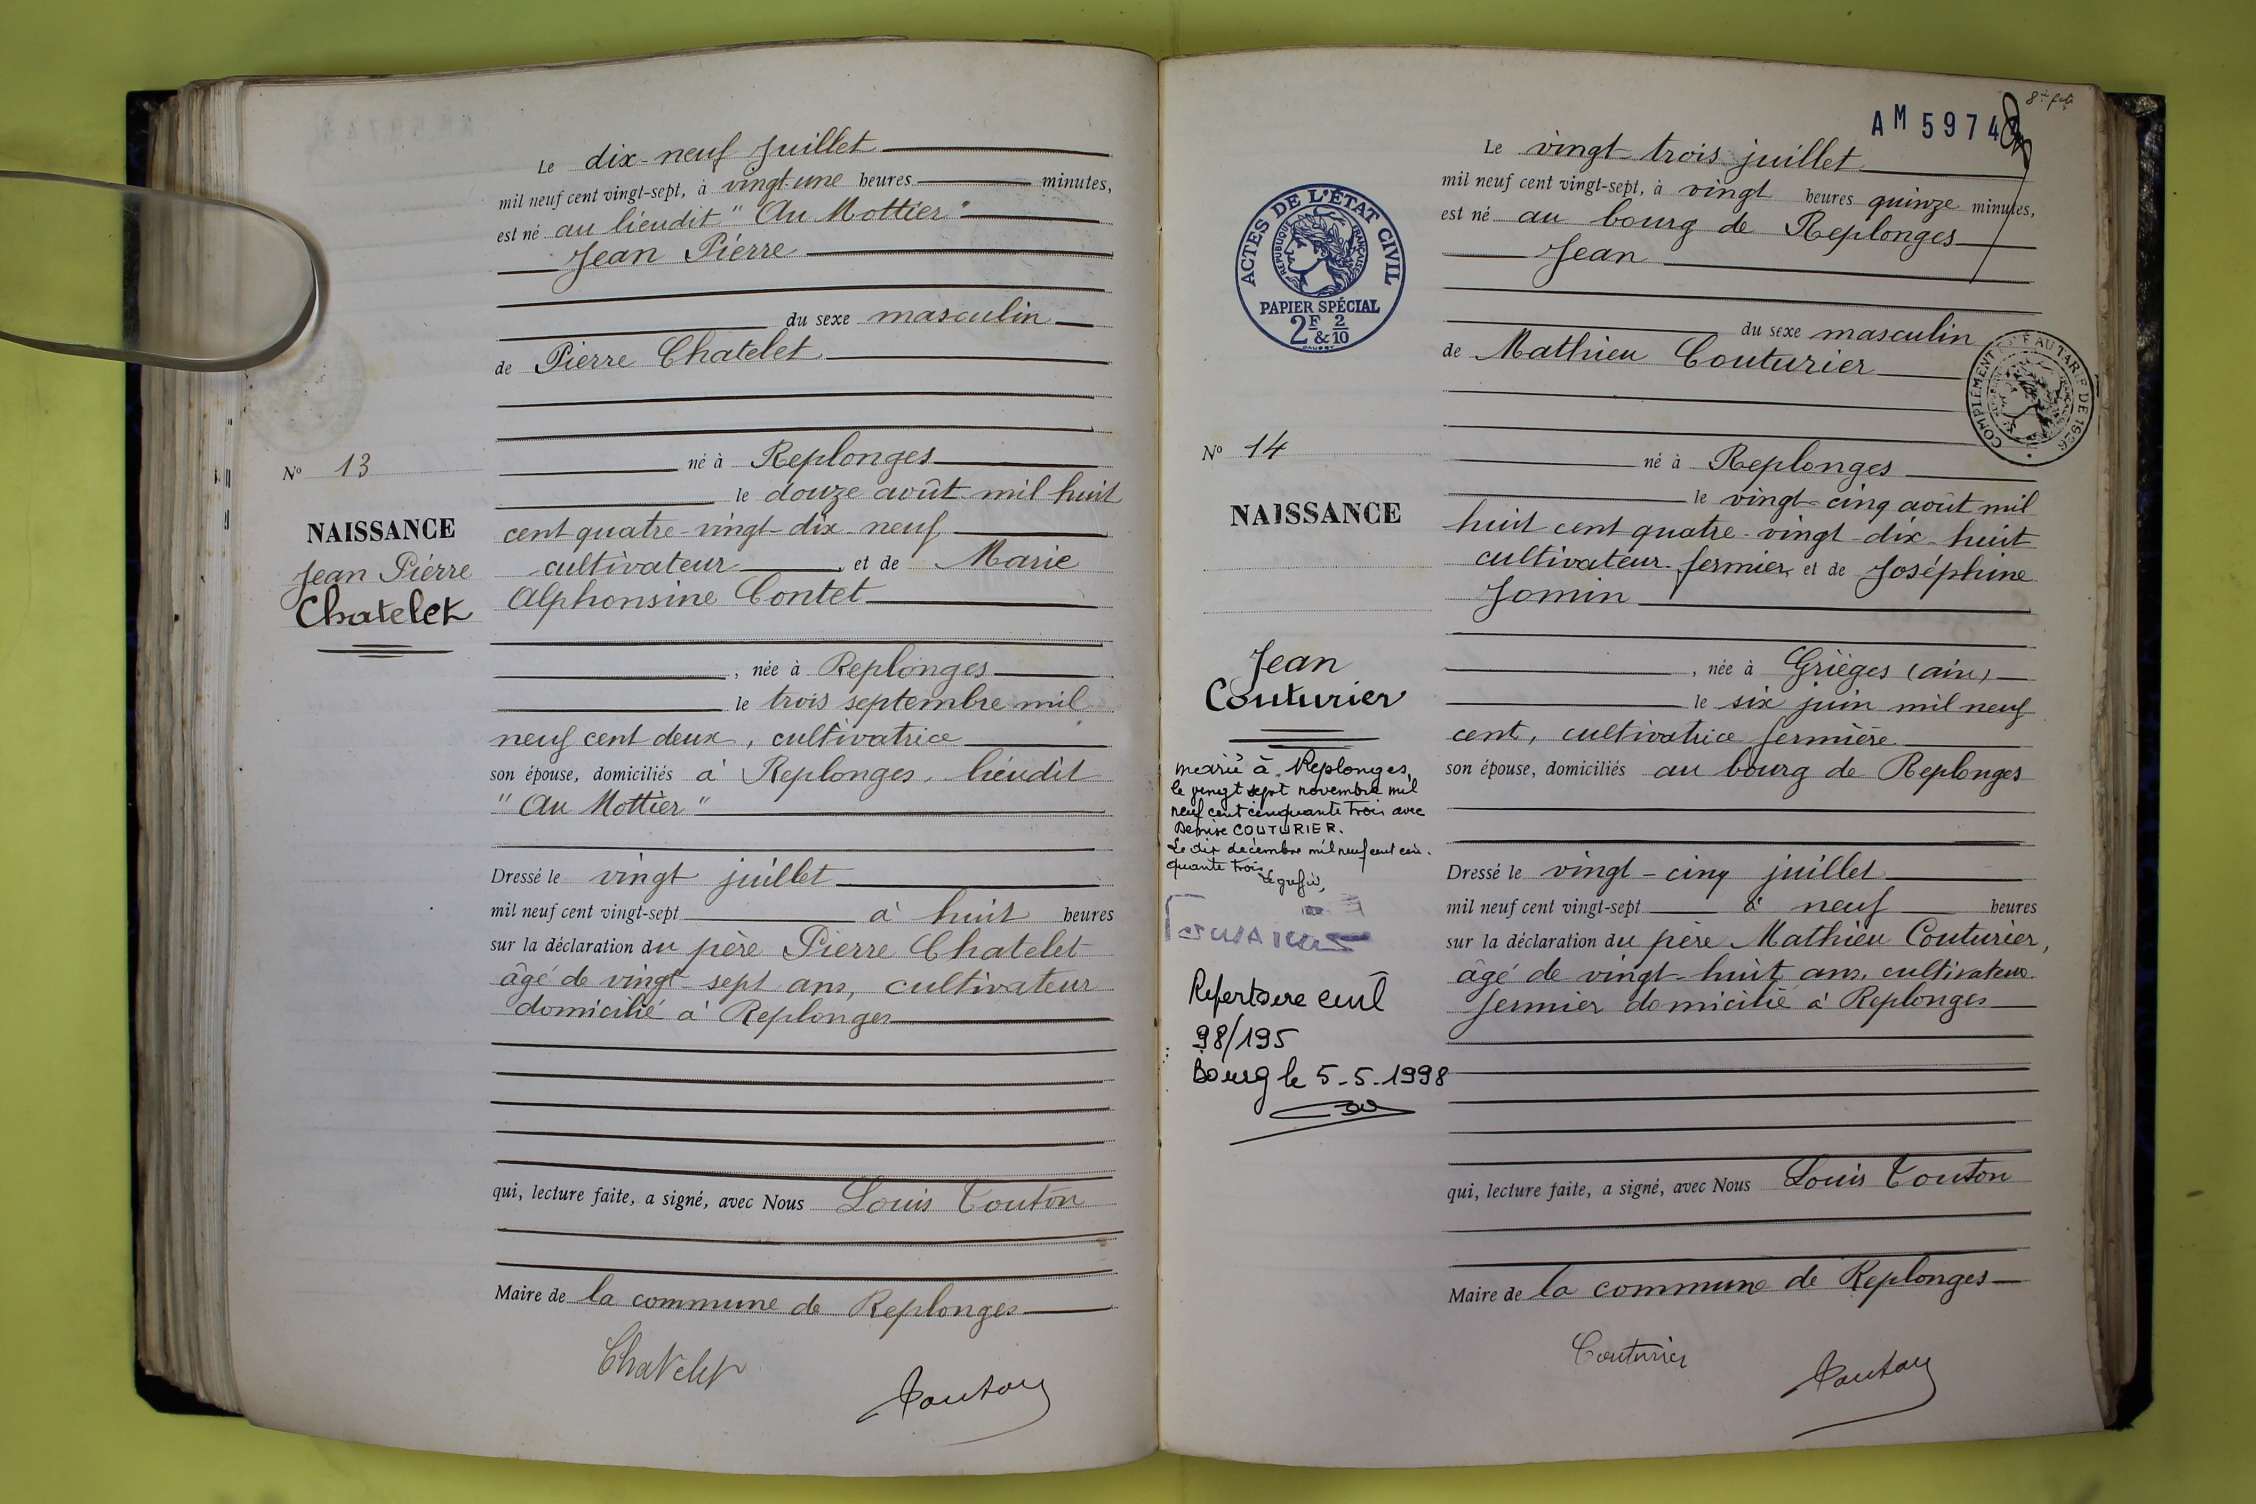 Le dix-neuf juillet
mil neuf cent vingt-sept, à vingt-une heures minutes,
est né au lieudit "Au Mottier"
Jean Pierre
du sexe masculin
de Pierre Chatelet
né à Replonges
le douze août mil huit
cent quatre-vingt-dix-neuf
cultivateur, et de Marie
Alphonsine Contet
, née à Replonges
le trois septembre mil
neuf cent deux, cultivatrice
son épouse, domiciliés à Replonges, lieudit
"Au Mottier"
Dressé le vingt juillet
mil neuf cent vingt-sept à huit heures
sur la déclaration du père Pierre Chatelet
âgé de vingt-sept ans, cultivateur
domicilié à Replonges
qui, lecture faite, a signé, avec Nous Louis Touton
Maire de la commune de Replonges
Chatelet
Touton
N° 13
NAISSANCE
Jean Pierre
Chatelet
8e fet
AM 5974
Le vingt-trois juillet
mil neuf cent vingt-sept, à vingt heures quinze minutes,
est né au bourg de Replonges
Jean
du sexe masculin
de Mathieu Couturier
né à Replonges
le vingt-cinq août mil
huit cent quatre-vingt-dix-huit
cultivateur-fermier, et de Joséphine
Jomin
, née à Grièges (Ain)
le six juin mil neuf
cent, cultivatrice fermière
son épouse, domiciliés au bourg de Replonges
Dressé le vingt-cinq juillet
mil neuf cent vingt-sept à neuf heures
sur la déclaration du père Mathieu Couturier,
âgé de vingt-huit ans, cultivateur
fermier domicilié à Replonges
qui, lecture faite, a signé, avec Nous Louis Touton
Maire de la commune de Replonges
Couturier
Touton
ACTES DE L'ÉTAT CIVIL
RÉPUBLIQUE FRANÇAISE
PAPIER SPÉCIAL
2F & 2/10
COMPLÉMENT AU TARIF DE 1926
N° 14
NAISSANCE
Jean
Couturier
marié à Replonges,
le vingt sept novembre mil
neuf cent cinquante trois avec
Denise COUTURIER.
Le dix décembre mil neuf cent cin-
quante trois
Le greffier,
Repertoire civil
98/195
Bourg le 5-5-1998